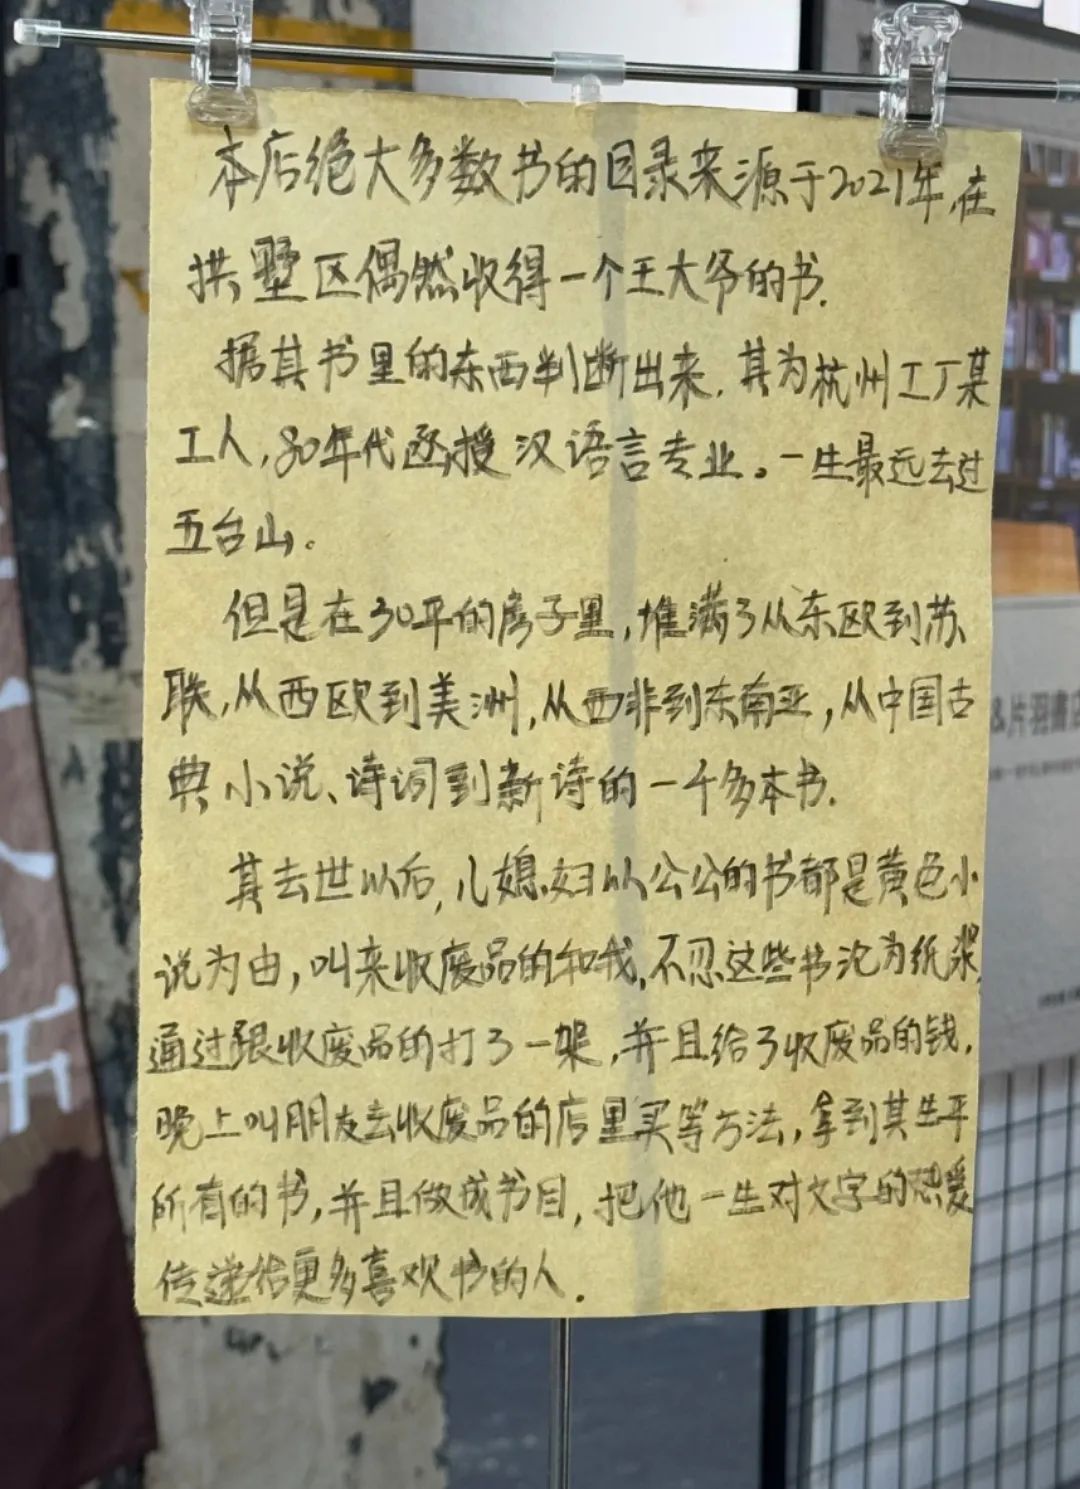 本店绝大多数书的目录来源于2021年,在
拱墅区偶然收得一个王大爷的书.
据其书里的东西判断出来.其为杭州工厂某
工人,80年代函授汉语言专业。一生最远去过
五台山。
但是在30平的房子里,堆满了从东欧到苏
联,从西欧到美洲,从西非到东南亚,从中国古
典小说、诗词到新诗的一千多本书.
其去世以后,儿媳妇以公公的书都是黄色小
说为由,叫来收废品的和我,不忍这些书沦为纸浆,
通过跟收废品的打了一架,并且给了收废品的钱,
晚上叫朋友去收废品的店里买等方法,拿到其生平
所有的书,并且做成书目,把他一生对文字的热爱
传递给更多喜欢书的人.
&片羽書店